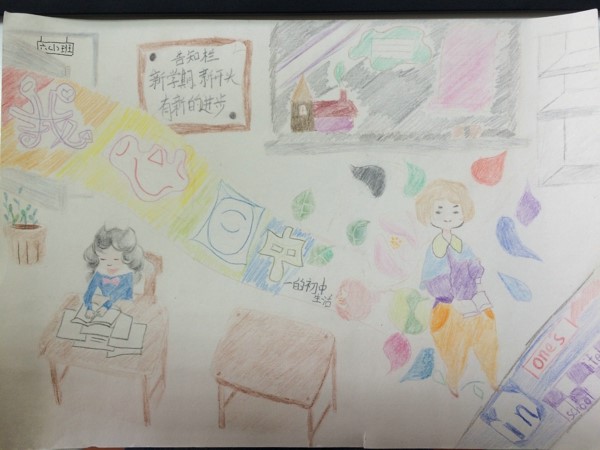 六小班
告知栏
新学期,新开头
有新的进步
我心目中
一的初中
生活
one's
in
school